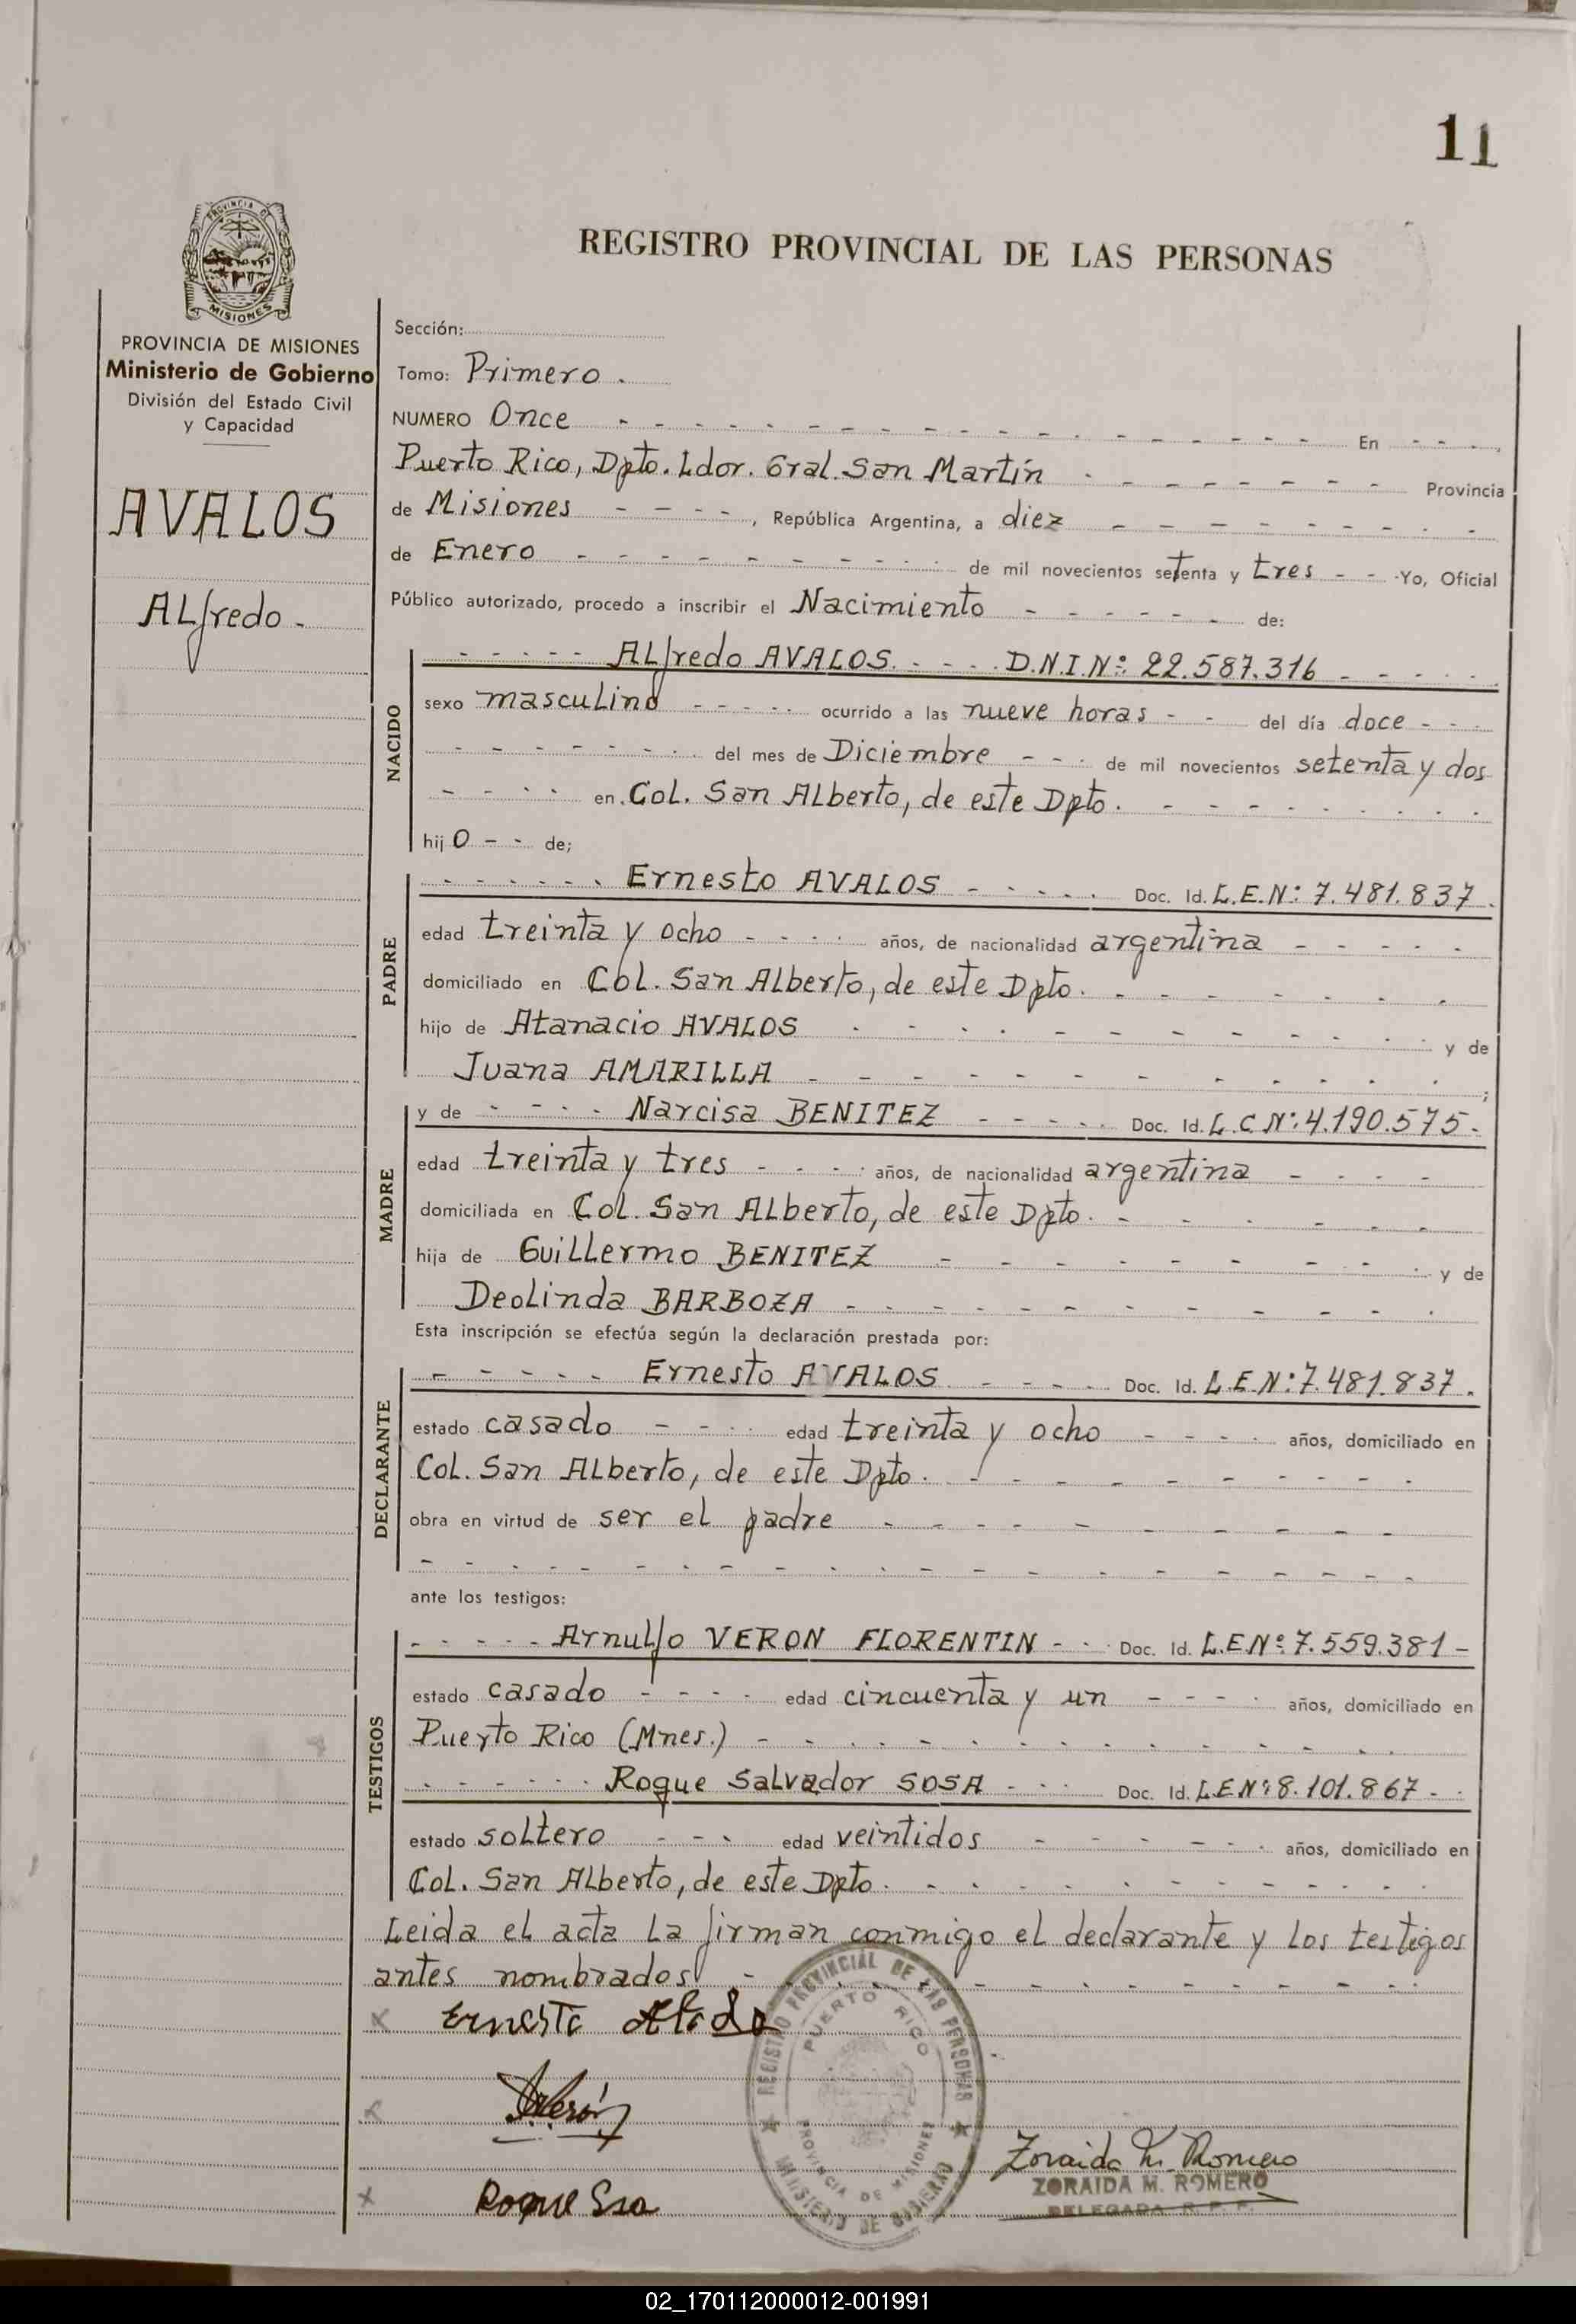 11
REGISTRO PROVINCIAL DE LAS PERSONAS
PROVINCIA DE MISIONES
PROVINCIA DE MISIONES
Ministerio de Gobierno
División del Estado Civil
y Capacidad
AVALOS
Alfredo -
Sección:
Tomo: Primero.
NUMERO Once - - - En - - -
Puerto Rico, Dpto. Ldor. Gral. San Martín - - - Provincia
de Misiones - - - -, República Argentina, a diez - - -
de Enero - - - de mil novecientos setenta y tres - - Yo, Oficial
Público autorizado, procedo a inscribir el Nacimiento - - - de:
NACIDO
- - - - - Alfredo AVALOS. - - - D.N.I.Nº: 22.587.316 - - -
sexo masculino - - - - - ocurrido a las nueve horas - - del día doce - - -
- - - del mes de Diciembre - - - de mil novecientos setenta y dos
- - - - en Col. San Alberto, de este Dpto. - - -
hijo - - de;
PADRE
- - - Ernesto AVALOS - - - Doc. Id. L.E.N: 7.481.837.
edad treinta y ocho - - - - años, de nacionalidad argentina - - -
domiciliado en Col. San Alberto, de este Dpto. - - -
hijo de Atanacio AVALOS - - - y de
Juana AMARILLA - - - ;
MADRE
y de - - - - Narcisa BENITEZ - - - Doc. Id. L.C.N: 4.190.575-
edad treinta y tres - - - - años, de nacionalidad argentina - - -
domiciliada en Col. San Alberto, de este Dpto. - - -
hija de Guillermo BENITEZ - - - y de
Deolinda BARBOZA - - -
Esta inscripción se efectúa según la declaración prestada por:
DECLARANTE
- - - - - Ernesto AVALOS - - - Doc. Id. L.E.N: 7.481.837.
estado casado - - - - edad treinta y ocho - - - - años, domiciliado en
Col. San Alberto, de este Dpto. - - -
obra en virtud de ser el padre - - -
- - -
ante los testigos:
TESTIGOS
- - - - - Arnulfo VERON FLORENTIN - - - Doc. Id. L.E.Nº 7.559.381-
estado casado - - - - edad cincuenta y un - - - - años, domiciliado en
Puerto Rico (Mnes.) - - -
- - - Roque Salvador SOSA - - - Doc. Id. L.E.Nº: 8.101.867 - -
estado soltero - - - - edad veintidos - - - años, domiciliado en
Col. San Alberto, de este Dpto. - - -
Leida el acta la firman conmigo el declarante y los testigos
antes nombrados - - -
REGISTRO PROVINCIAL DE LAS PERSONAS
PUERTO RICO
PROVINCIA DE MISIONES
MINISTERIO DE GOBIERNO
x Ernesto
x
x Roque Ssa
Zoraida M. Romero
ZORAIDA M. ROMERO
DELEGADA R. P. P.
02_170112000012-001991